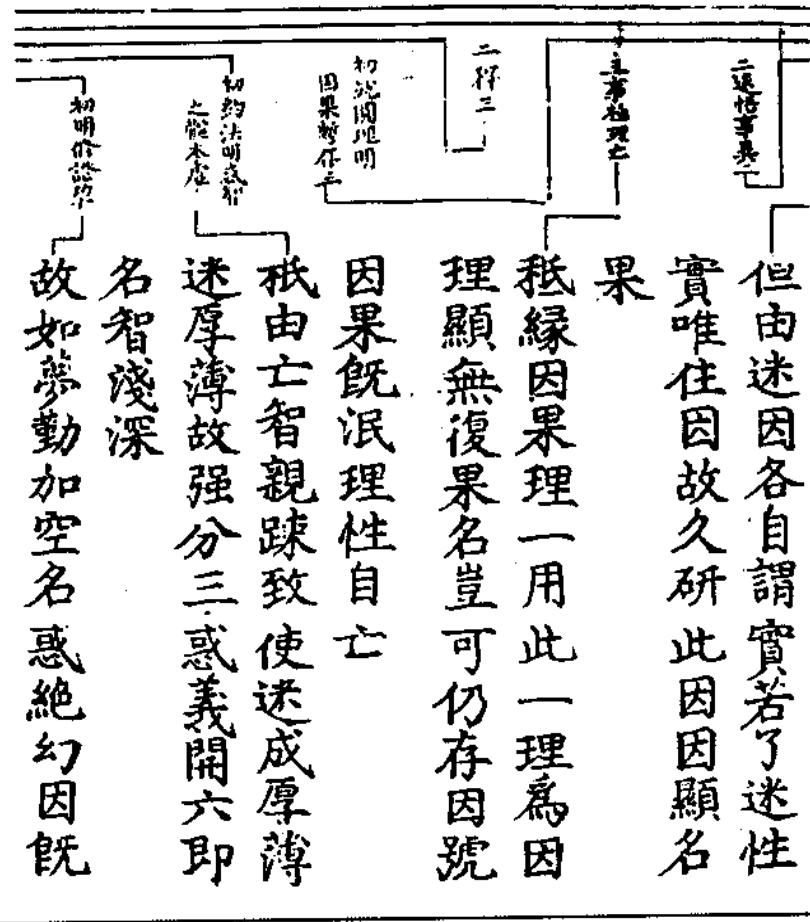 二迷悟事異二
但由迷因各自謂實若了迷性
實唯住因故久研此因因顯名
果
三事極理亡
秖緣因果理一用此一理爲因
理顯無復果名豈可仍存因號
二釋三
初就圓理明
因果暫存三
因果既泯理性自亡
初約法明惑智
之體本虛
秖由亡智親踈致使迷成厚薄
迷厚薄故强分三惑義開六即
名智淺深
初明修證
故如夢勤加空名惑絶幻因既